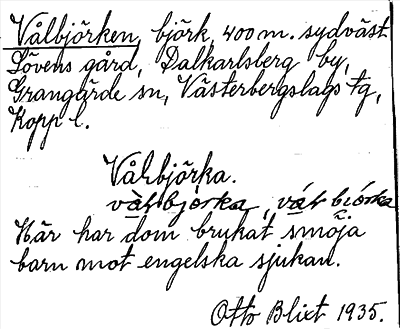 Vålbjörken, björk, 400 m. sydväst
Lövens gård, Dalkarlsberg by,
Grangärde sn, Västerbergslags tg,
Kopp l.
Vårbjörka.
Här har dom brukat smöja
barn mot engelska sjukan.
Otto Blixt 1935.